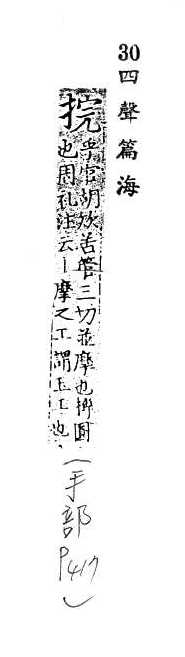 30四聲篇海
捖乎官胡欵苦管三切並摩也摶圓
也周礼注云丨摩之工謂玉工也
(手部P417)